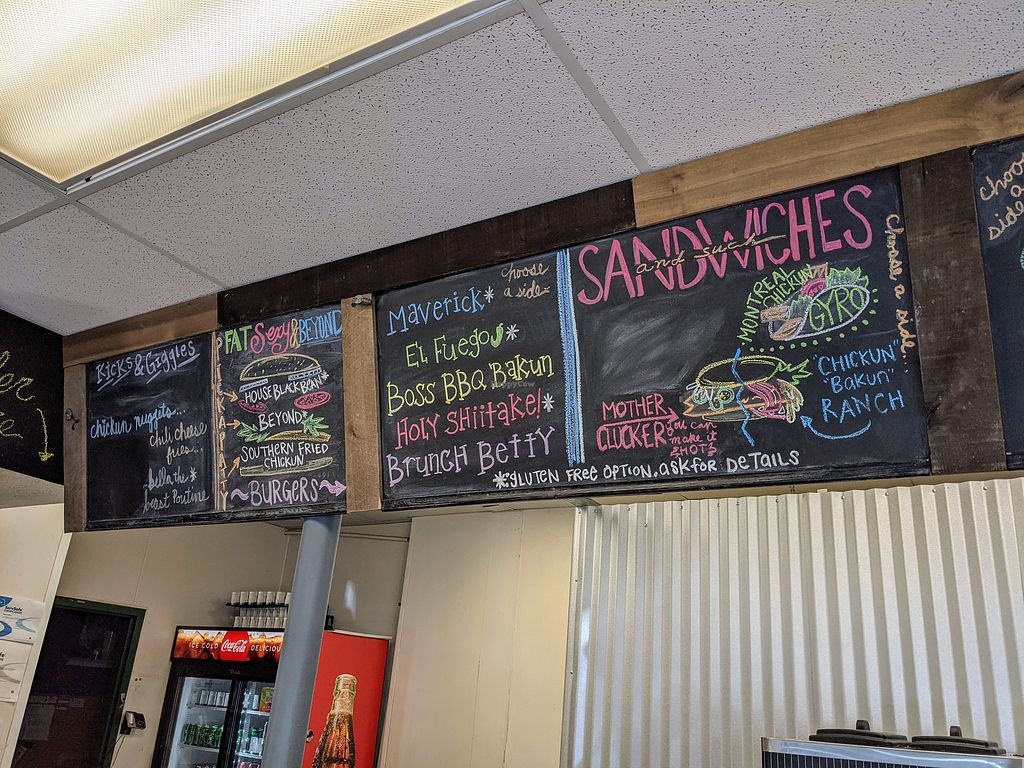 Kicks & Giggles
chicken nuggets...
chili cheese
fries...
bella the*
beast Poutine
FAT Sexy & BEYOND
HOUSE BLACK BEAN*
BEYOND*
SOUTHERN FRIED
CHICKUN
~BURGERS~
choose
a side
Maverick*
EL FUEGO*
BOSS BBQ Bakun
HOLY SHiitake!*
BRUNCH BETTY
*GLUTEN FREE OPTION. ask FOR DETAILS
SANDWICHES
and such
MONTREAL
CHICKUN
GYRO
"CHICKUN"
"BAKUN"
RANCH
MOTHER
CLUCKER
you can
make it
*HOT*
choose a side...
choose
a
side
ICE COLD Coca-Cola DELICIOU
ServSafe
HappyCow